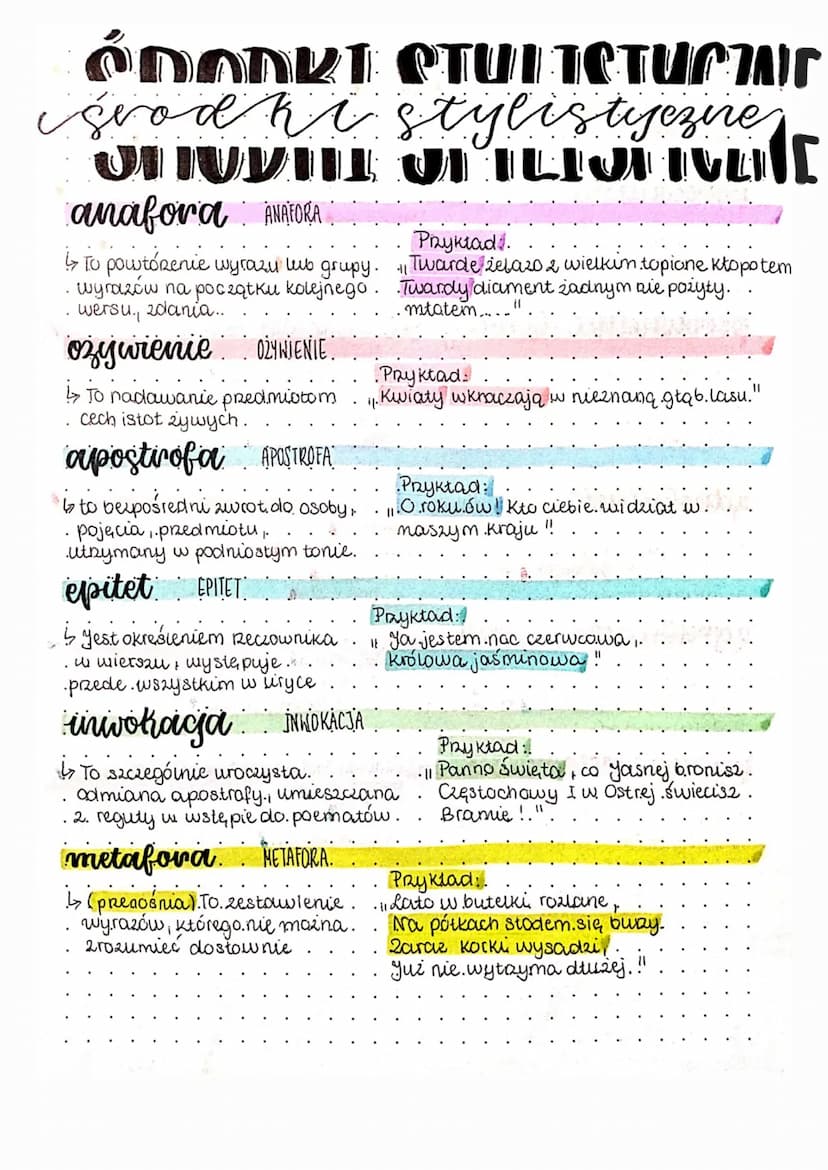 ŚRODKI STYLISTYCZNE
środki stylistyczne
anafora ANAFORA
Przykład:
↳ To powtórzenie wyrazu lub grupy
wyrazów na początku kolejnego
wersu, zdania.
„Twarde żelazo z wielkim topione kłopotem
Twardy diament żadnym nie pożyty
młotem...."
ożywienie OŻYWIENIE
Przykład:
↳ To nadawanie przedmiotom
cech istot żywych
„Kwiaty wkraczają w nieznaną głąb lasu."
apostrofa APOSTROFA
Przykład:
↳ to bezpośredni zwrot do osoby,
pojęcia, przedmiotu,
utrzymany w podniosłym tonie.
„O roku ów! Kto ciebie widział w
naszym kraju"
epitet EPITET
Przykład:
↳ Jest określeniem rzeczownika
w wierszu, występuje
przede wszystkim w liryce
„Ja jestem noc czerwcowa,
królowa jaśminowa"
inwokacja INWOKACJA
Przykład:
↳ To szczególnie uroczysta
odmiana apostrofy, umieszczana
z reguły w wstępie do poematów.
„Panno Święta, co Jasnej bronisz
Częstochowy I w Ostrej świecisz
Bramie!."
metafora METAFORA
Przykład:
↳ (przenośnia) To zestawienie
wyrazów, którego nie można
zrozumieć dosłownie
„Lato w butelki rozlane,
Na półkach słodem się burzy.
Zaraz korki wysadzi,
Już nie wytrzyma dłużej."